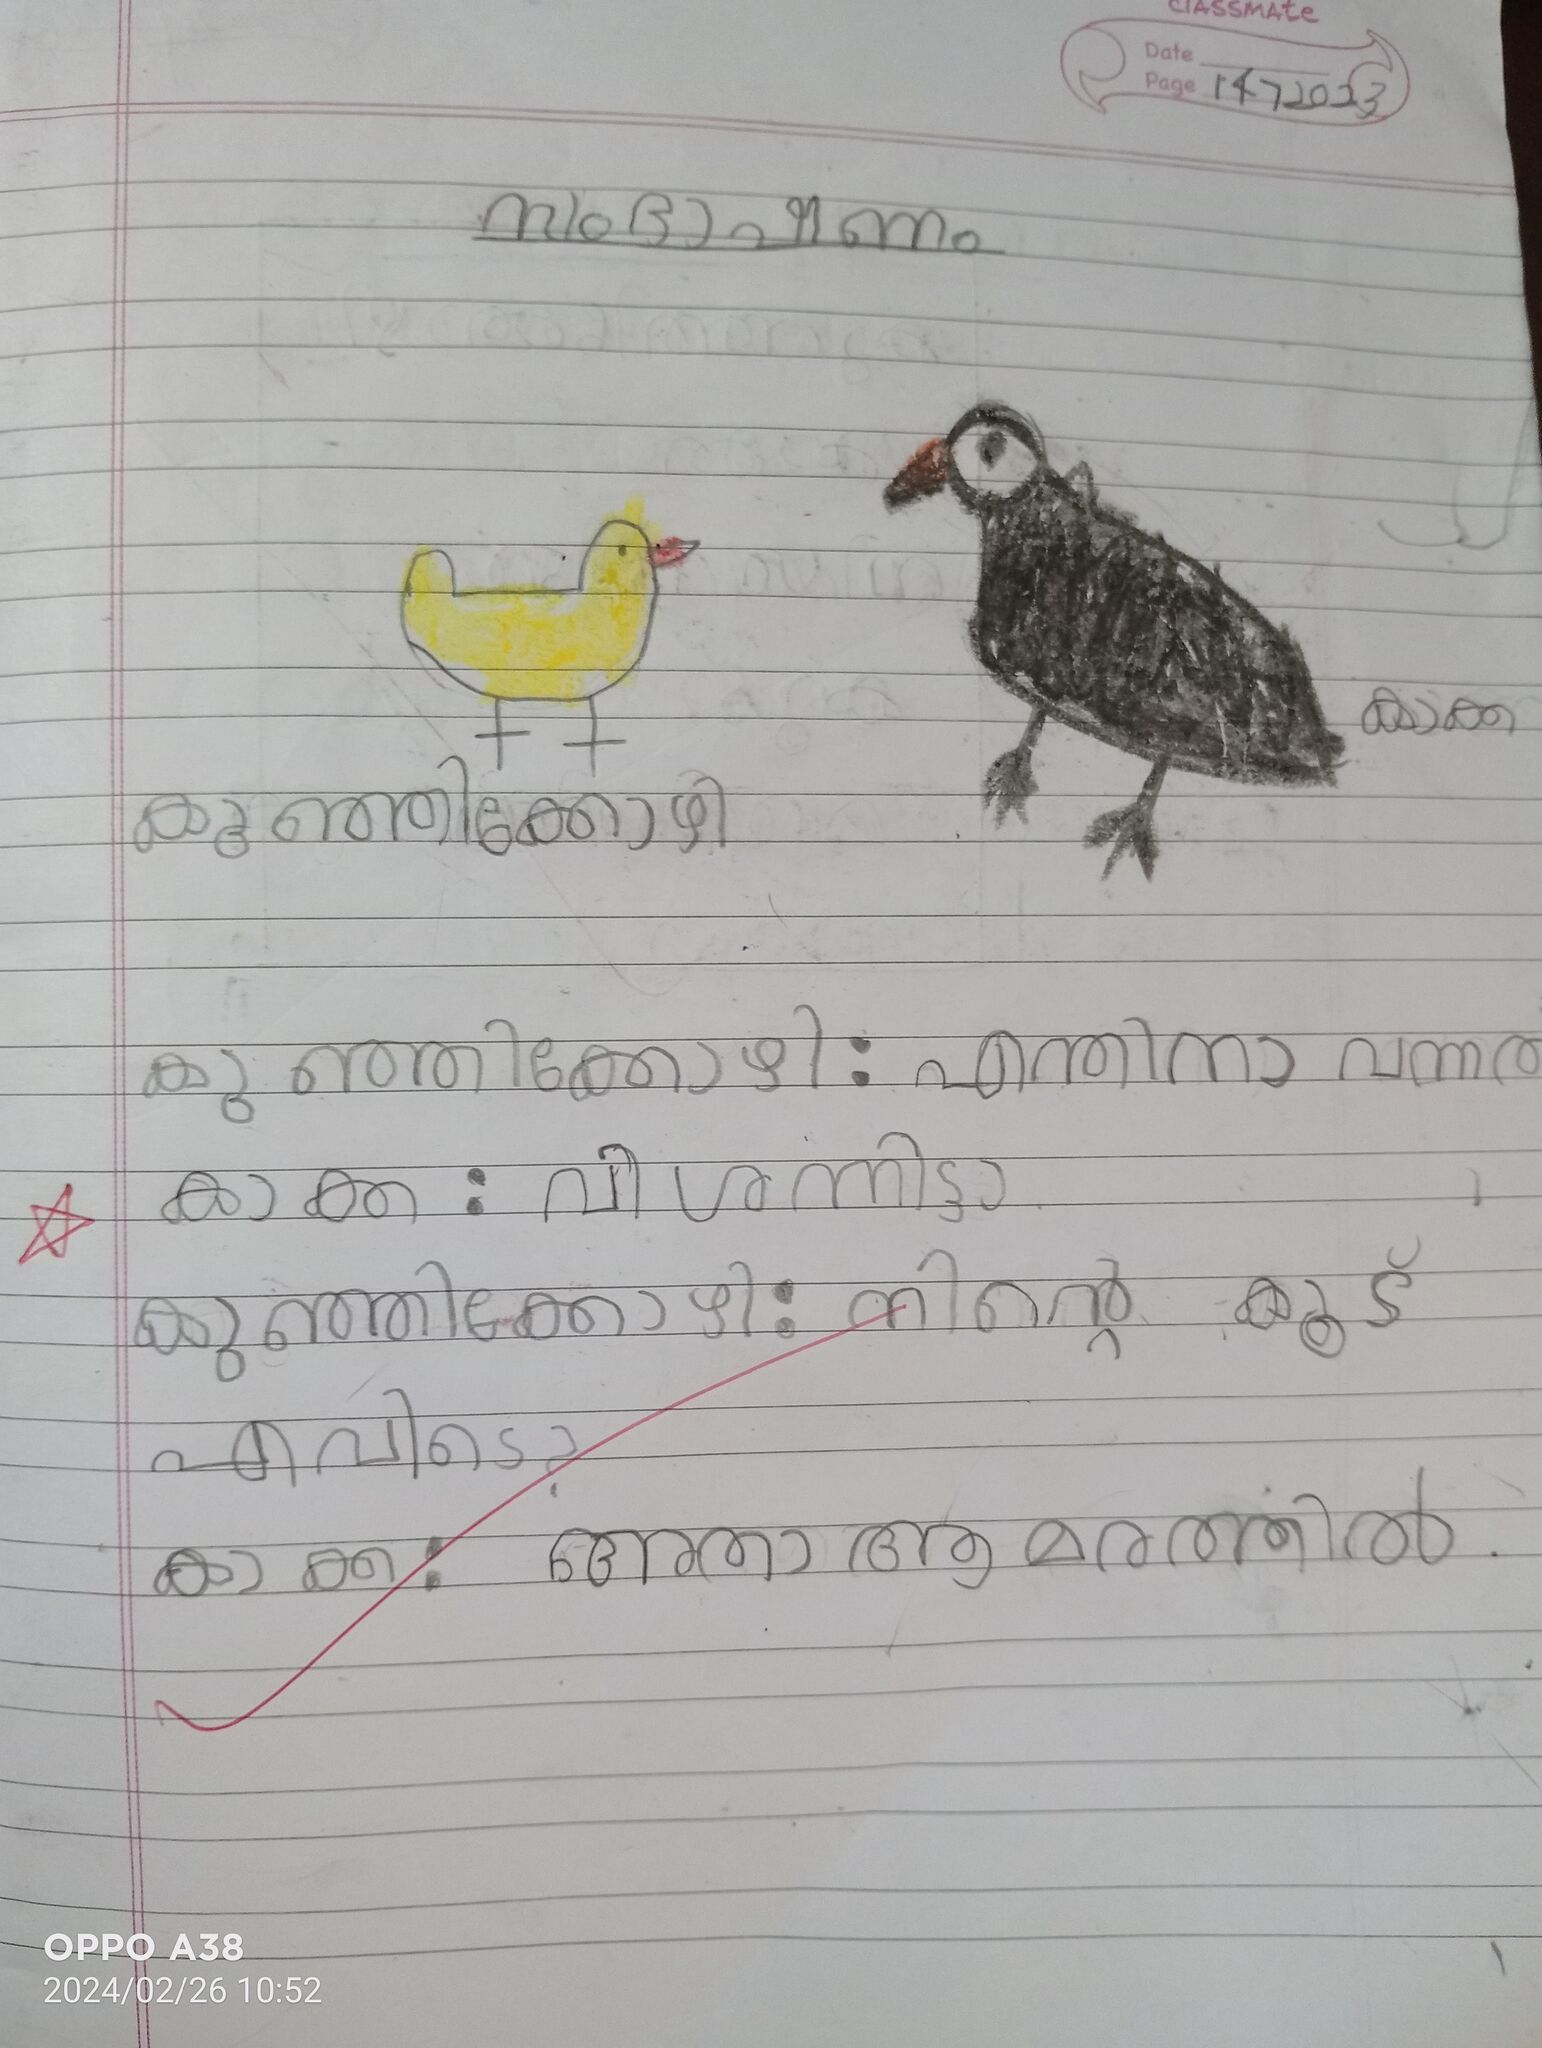 classmate
Date
Page 1472023
സംഭാഷണം
കാക്ക
കുഞ്ഞിക്കോഴി
കുഞ്ഞിക്കോഴി: എന്തിനാ വന്നത്
കാക്ക: വിശന്നിട്ടാ
കുഞ്ഞിക്കോഴി: നിന്റെ കൂട്
എവിടെ?
കാക്ക: അതാ ആ മരത്തിൽ.
OPPO A38
2024/02/26 10:52